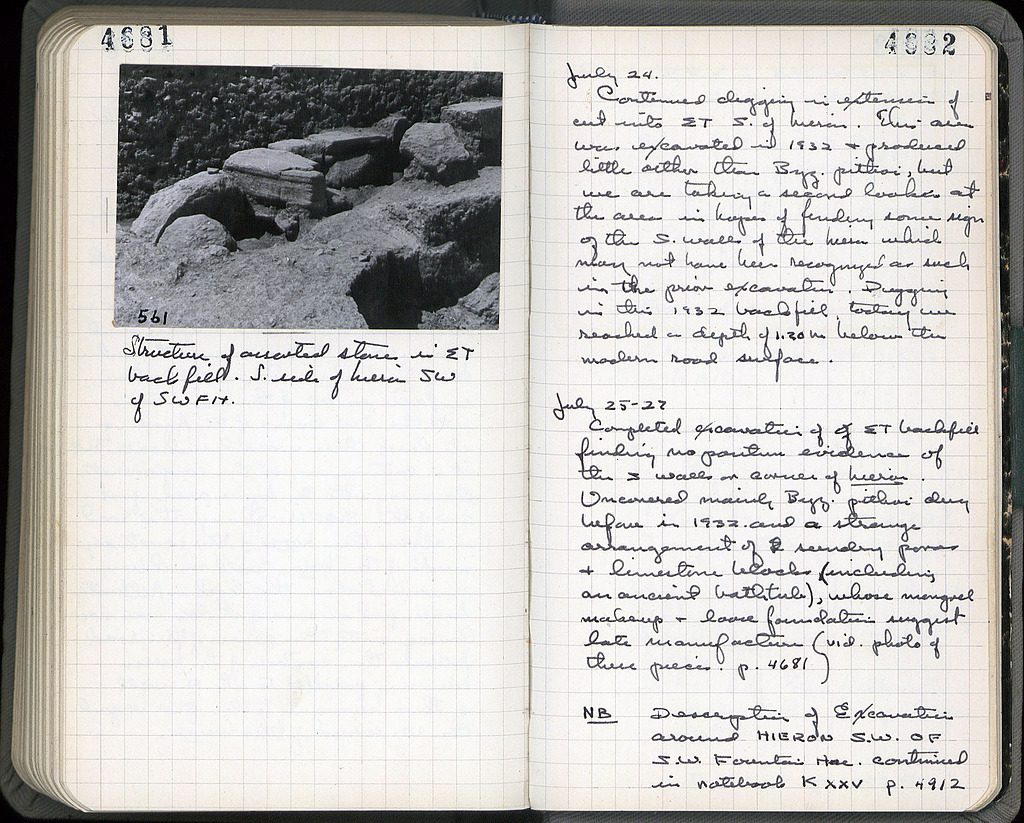 4681
561
Structure of assorted stones in ET
backfill. S. side of hieron SW
of SWFH.
4682
July 24.
Continued digging in extension of
cut into ET S. of hieron. This area
was excavated in 1932 + produced
little other than Byz. pithoi, but
we are taking a second look at
the area in hopes of finding some sign
of the S. walls of the hieron which
may not have been recognized as such
in the prior excavation. Digging
in this 1932 backfill, today we
reached a depth of 1.20 m below the
modern road surface.
July 25-27
Completed excavation of ET backfill
finding no positive evidence of
the S walls or corner of hieron.
Uncovered mainly Byz. pithoi dug
before in 1932 and a strange
arrangement of sundry poros
+ limestone blocks (including
an ancient bathtub), whose mongrel
makeup + loose foundation suggest
late manufacture (vid. photo of
these pieces. p. 4681)
NB Description of Excavation
around HIERON S.W. OF
S.W. Fountain Hse. continued
in notebook K XXV p. 4912